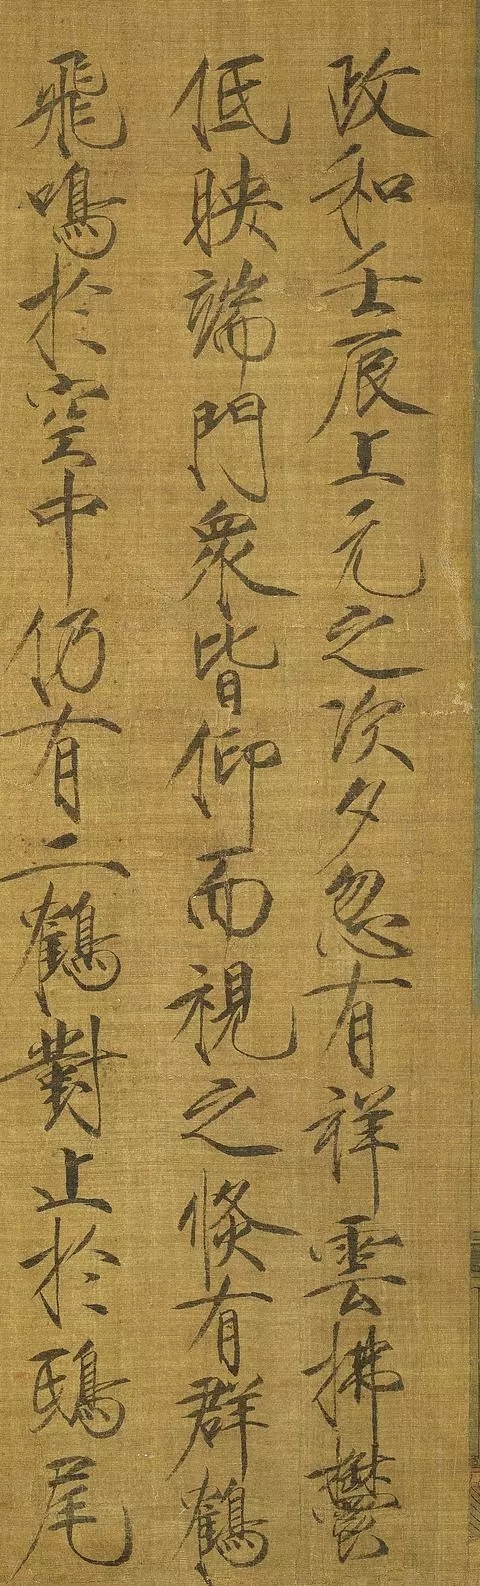 政和壬辰上元之次夕忽有祥雲拂鬱
低映端門衆皆仰而視之倐有群鶴
飛鳴於空中仍有二鶴對止於鴟尾